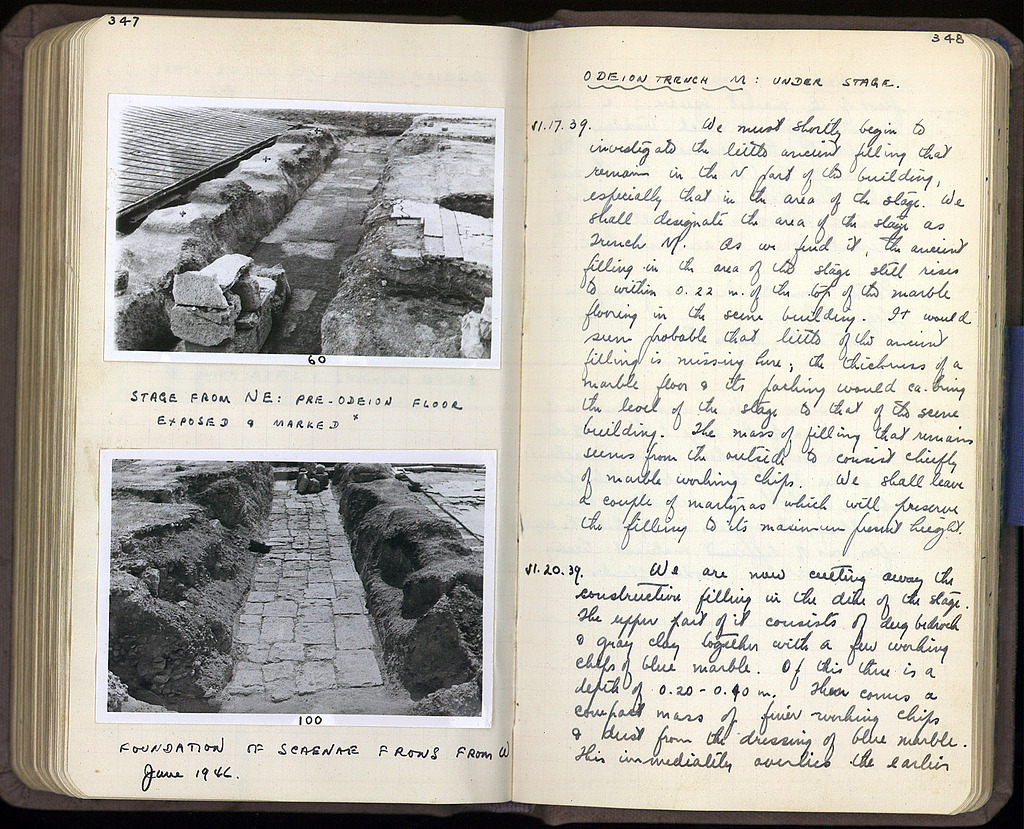 347
60
STAGE FROM NE: PRE-ODEION FLOOR
EXPOSED & MARKED x
100
FOUNDATION OF SCAENAE FRONS FROM W
June 1946.
348
ODEION TRENCH M: UNDER STAGE.
VI.17.39. We must shortly begin to
investigate the little ancient filling that
remains in the N part of the building,
especially that in the area of the stage. We
shall designate the area of the stage as
Trench M. As we find it, the ancient
filling in the area of the stage still rises
to within 0.22 m. of the top of the marble
flooring in the scene building. It would
seem probable that little of the ancient
filling is missing here; the thickness of a
marble floor & its packing would ca. bring
the level of the stage to that of the scene
building. The mass of filling that remains
seems from the outside to consist chiefly
of marble working chips. We shall leave
a couple of martyras which will preserve
the filling to its maximum present height.
VI.20.39. We are now cutting away the
constructive filling in the dike of the stage.
The upper part of it consists of dug bedrock
& gray clay together with a few working
chips of blue marble. Of this there is a
depth of 0.20-0.40 m. Then comes a
compact mass of finer working chips
& dust from the dressing of blue marble.
This immediately overlies the earlier